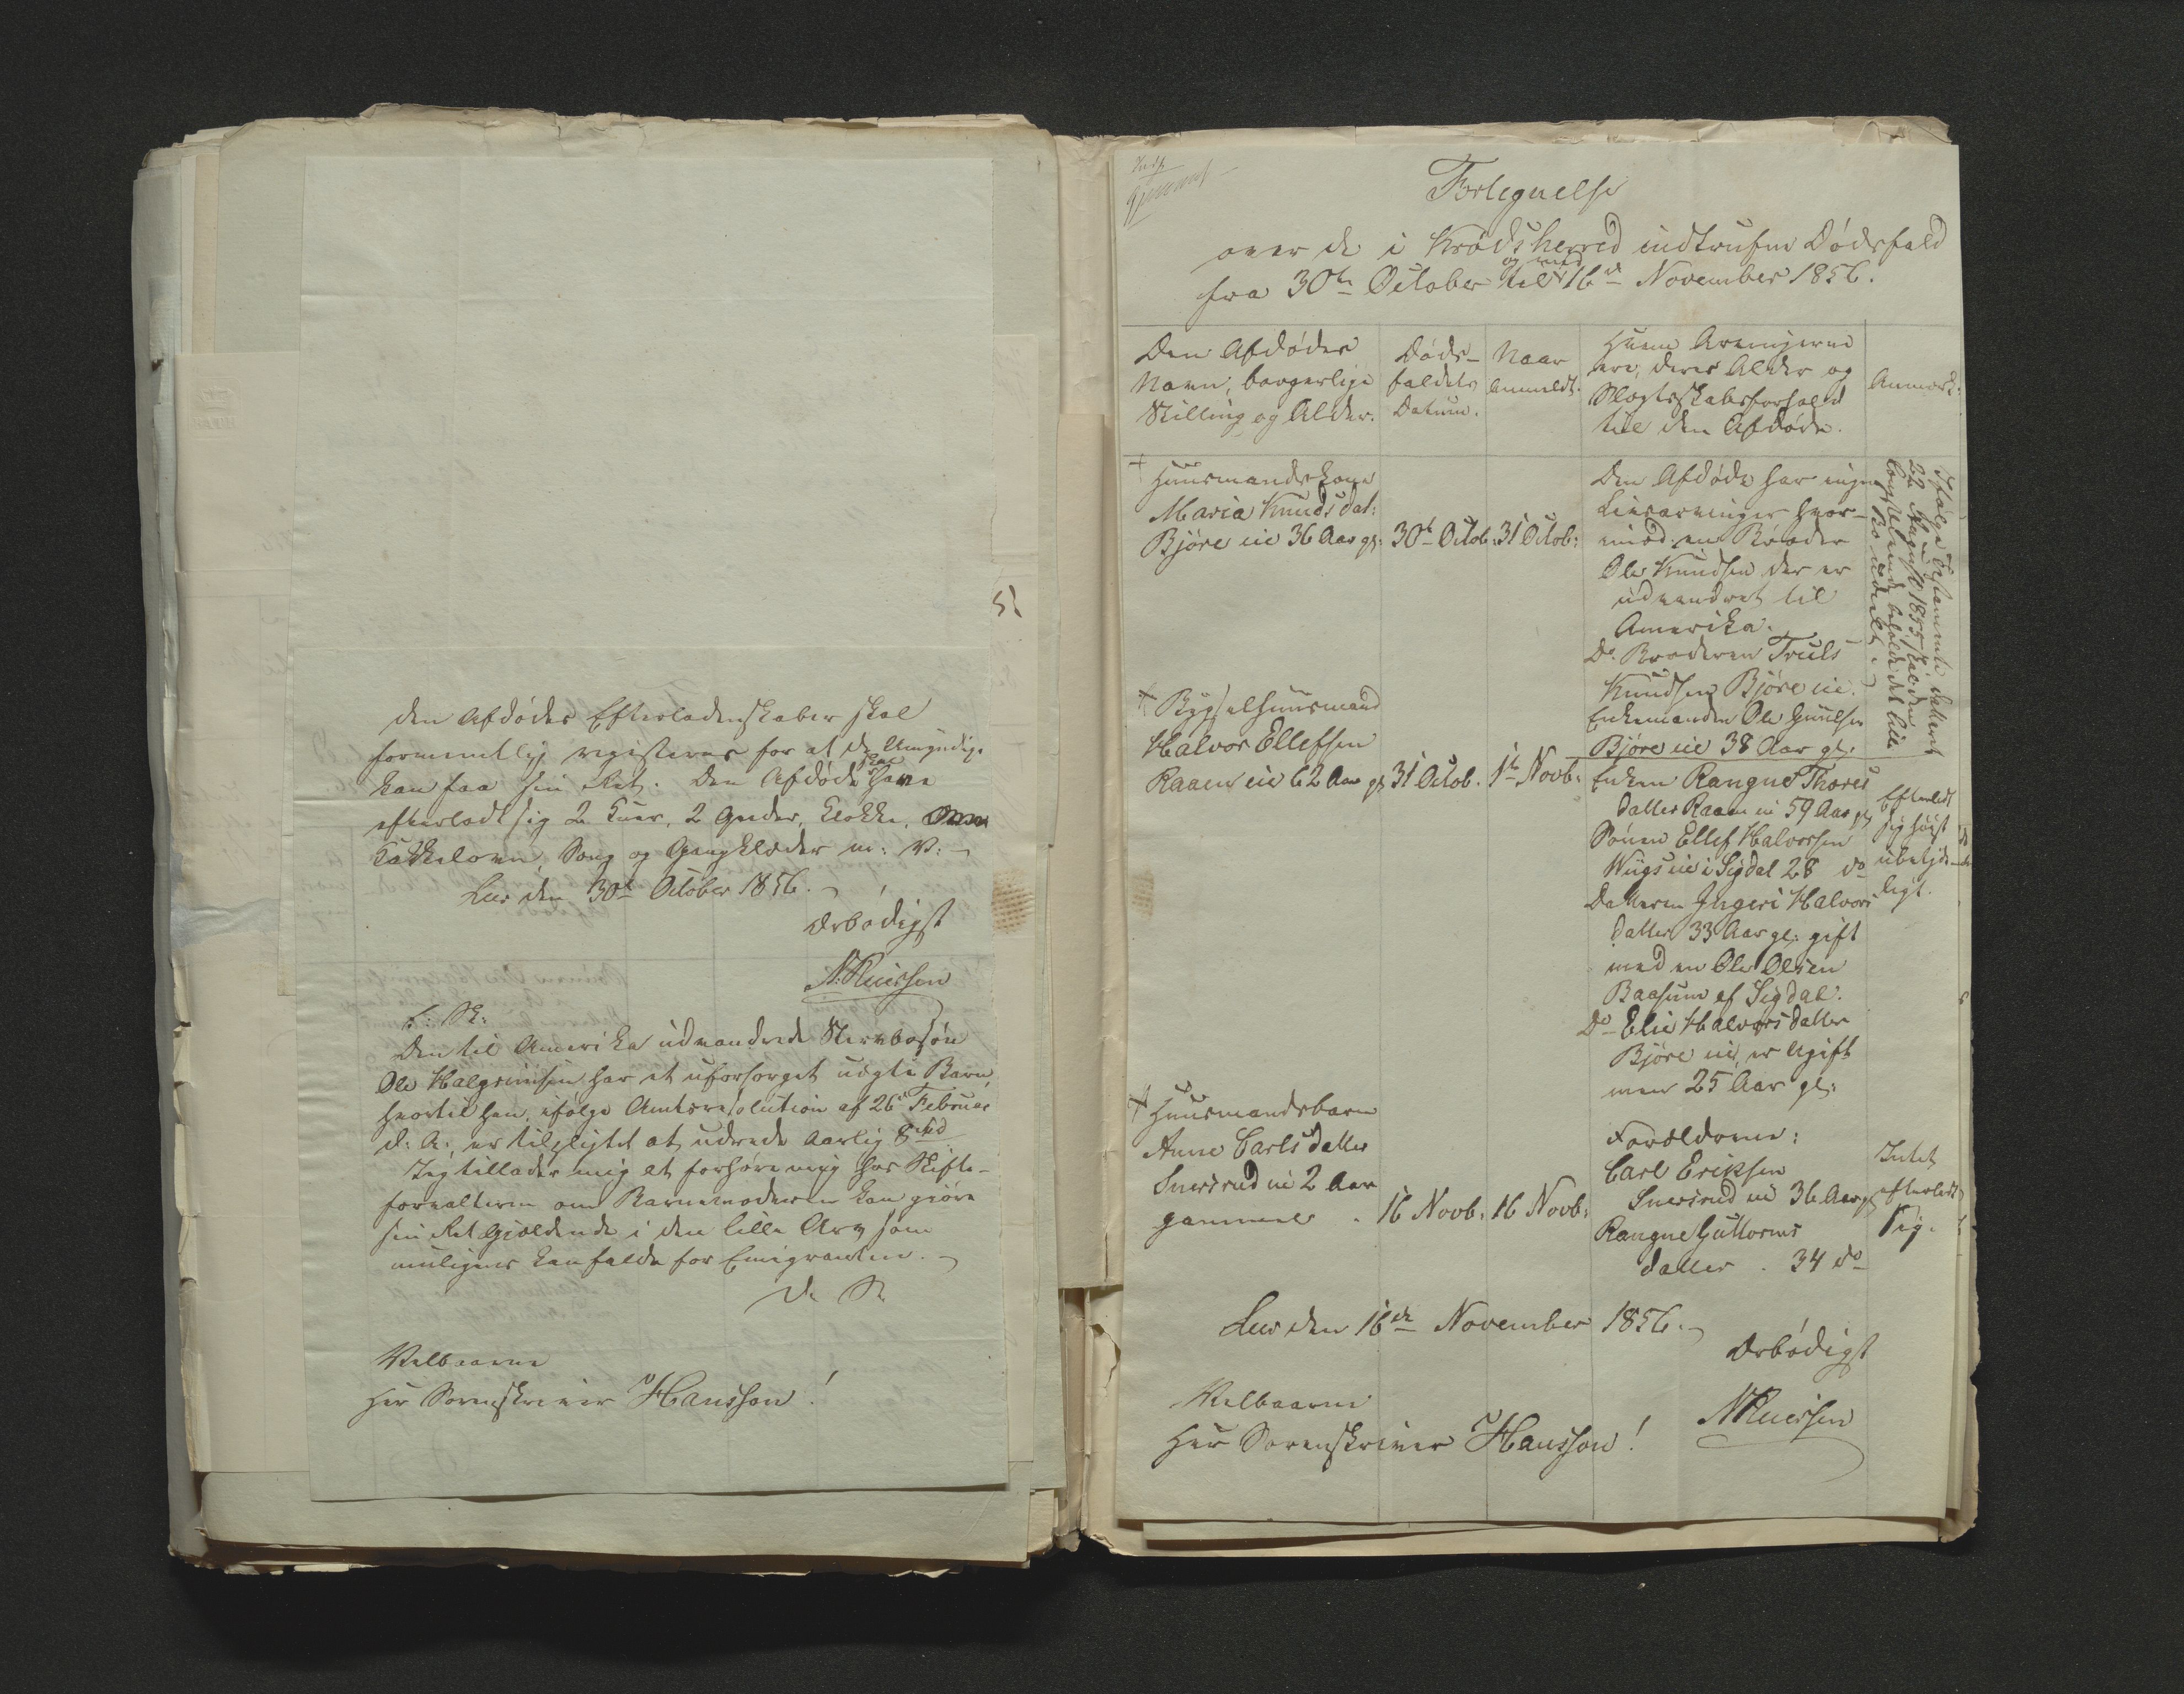 den Afdødes Efterladenskaber skal
formentlig registeres for at de Umyndige
kan faa sin Ret. Den Afdøde skal have
efterladt sig 2 Kuer, 2 Geder, Klokke,
Kakkelovn, Seng og Gangklæder m: V:
Leer den 30te October 1856.
Ærbødigst
N. Ruersen
E: S:
Den til Amerika udvandrede Stervbosøn
Ole Halgrimsen har et uforsørget uægte Barn
hvortil han, ifølge Amtsresolution af 26de Februar
d: A: er tilpligtet at udrede aarlig 8 Spd
Jeg tillader mig at forhøre mig hos Skifte-
forvalteren om Barnemoderen kan gjøre
sin Ret gjældende i den lille Arv som
muligens kan falde for Emigranten.
D. S.
Velbaarne
Herr Sorenskriver Hansson!
51
Fortegnelse
over de i Krødsherred indtrufne Dødsfald
fra 30te October til og med 16de November 1856.
Den Afdødes
Navn, borgerlige
Stilling og Alder.
Døds-
faldets
Datum.
Naar
anmeldt.
Hvem Arvingerne
ere, deres Alder og
Slægtskabsforhold
til den Afdøde.
Anmærk:
Huusmandskone
Maria Knudsdat:
Bjøre eie 36 Aar gl:
30te Octob.
31 Octob:
Den Afdøde har ingen
Livsarvinger hvor-
imod en Broder
Ole Knudsen der er
udvandret til
Amerika.
Do Broderen Truls
Knudsen Bjøre eie.
Enkemanden Ole Guulsen
Bjøre eie 38 Aar gl.
Ifølge Testamente dateret
22 August 1855 skal den
længstlevende beholde det lille
Bo udeelt.
Bygselhuusmand
Halvor Ellefsen
Raaen eie 62 Aar gl
31 Octob.
1te Novb:
Enken Rangne Thores
datter Raaen ei 59 Aar gl
Sønnen Ellef Halvorsen
Wiigs eie i Sigdal 28 do
Datteren Ingeri Halvors
datter 33 Aar gl: gift
med en Ole Olsen
Baasum af Sigdal.
Do Elie Halvorsdatter
Bjøre eie, er ugift
men 25 Aar gl:
Efterladt
sig høist
ubetyde-
ligt.
Huusmandsbarn
Anne Carlsdatter
Snersrud ei 2 Aar
gammel
16 Novb:
16 Novb:
Forældrene:
Carl Eriksen
Snersrud eie 36 Aar gl
Rangne Guttorms
datter . 34 do
Intet
efterladt
sig.
Leer den 16de November 1856.
Ærbødigst
N Ruersen
Velbaarne
Herr Sorenskriver Hansson!